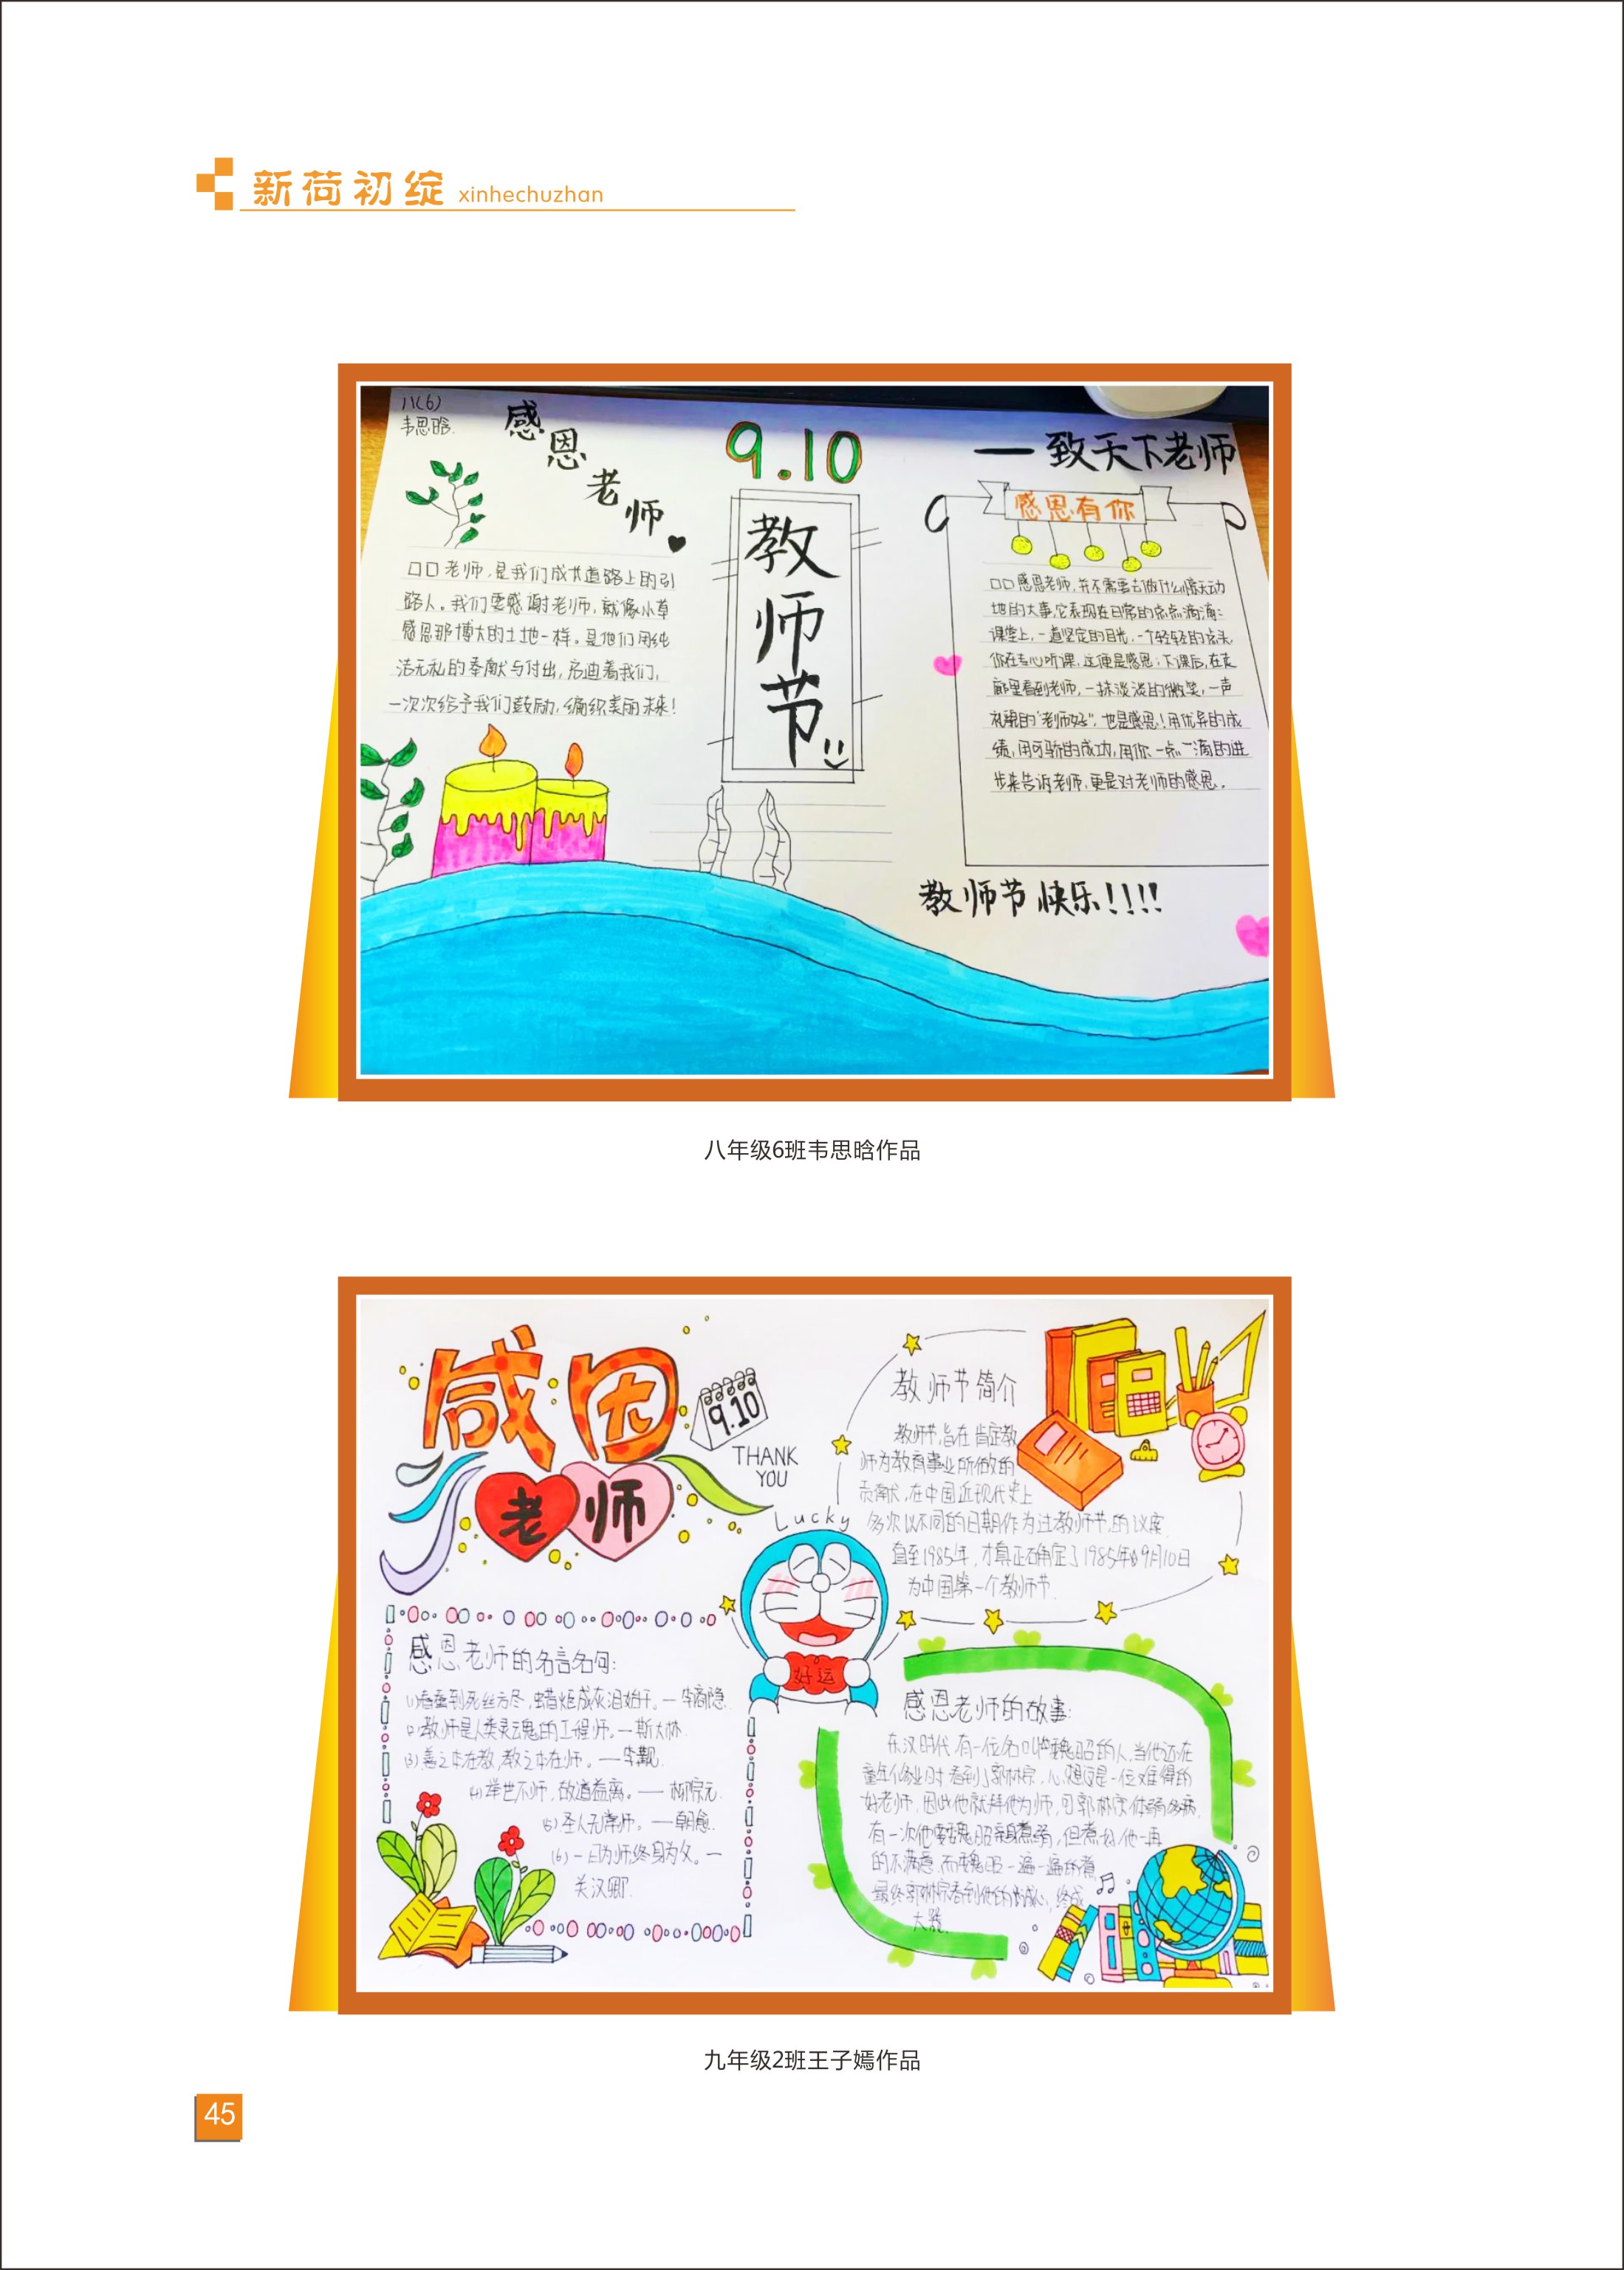 新荷初绽 xinhechuzhan
八(6)
韦思晗
感恩老师
9.10
——致天下老师
教师节
感恩有你
□□老师,是我们成长道路上的引
路人。我们要感谢老师,就像小草
感恩那博大的土地一样。是他们用纯
洁无私的奉献与付出,启迪着我们,
一次次给予我们鼓励,编织美丽未来!
□□感恩老师,并不需要去做什么惊天动
地的大事,它表现在日常的点点滴滴:
课堂上,一道坚定的目光,一个轻轻的点头
你在专心听课,这便是感恩;下课后,在走
廊里看到老师,一抹淡淡的微笑,一声
礼貌的"老师好",也是感恩!用优异的成
绩,用可骄的成功,用你一点一滴的进
步来告诉老师,更是对老师的感恩。
教师节快乐!!!!
八年级6班韦思晗作品
感恩
老师
9.10
THANK
YOU
Lucky
好运
教师节简介
教师节,旨在肯定教
师为教育事业所做的
贡献,在中国近现代史上
多次以不同的日期作为过教师节的议案
直至1985年,才真正确定了1985年9月10日
为中国第一个教师节.
感恩老师的名言名句:
(1)春蚕到死丝方尽,蜡炬成灰泪始干。—李商隐.
(2)教师是人类灵魂的工程师。—斯大林.
(3)善之本在教,教之本在师。——李觏.
(4)举世不师,故道益离。——柳宗元.
(5)圣人无常师。——韩愈.
(6)一日为师终身为父。—
关汉卿.
感恩老师的故事:
东汉时代有一位名叫魏昭的人,当他还在
童年修业时看到了郭林宗,心想这是一位难得的
好老师,因此他就拜他为师,可郭林宗体弱多病,
有一次他要魏昭亲身煮粥,但煮好他一再
的不满意,而魏昭一遍一遍的煮
最终郭林宗看到他的诚心,终成
大器.
九年级2班王子嫣作品
45